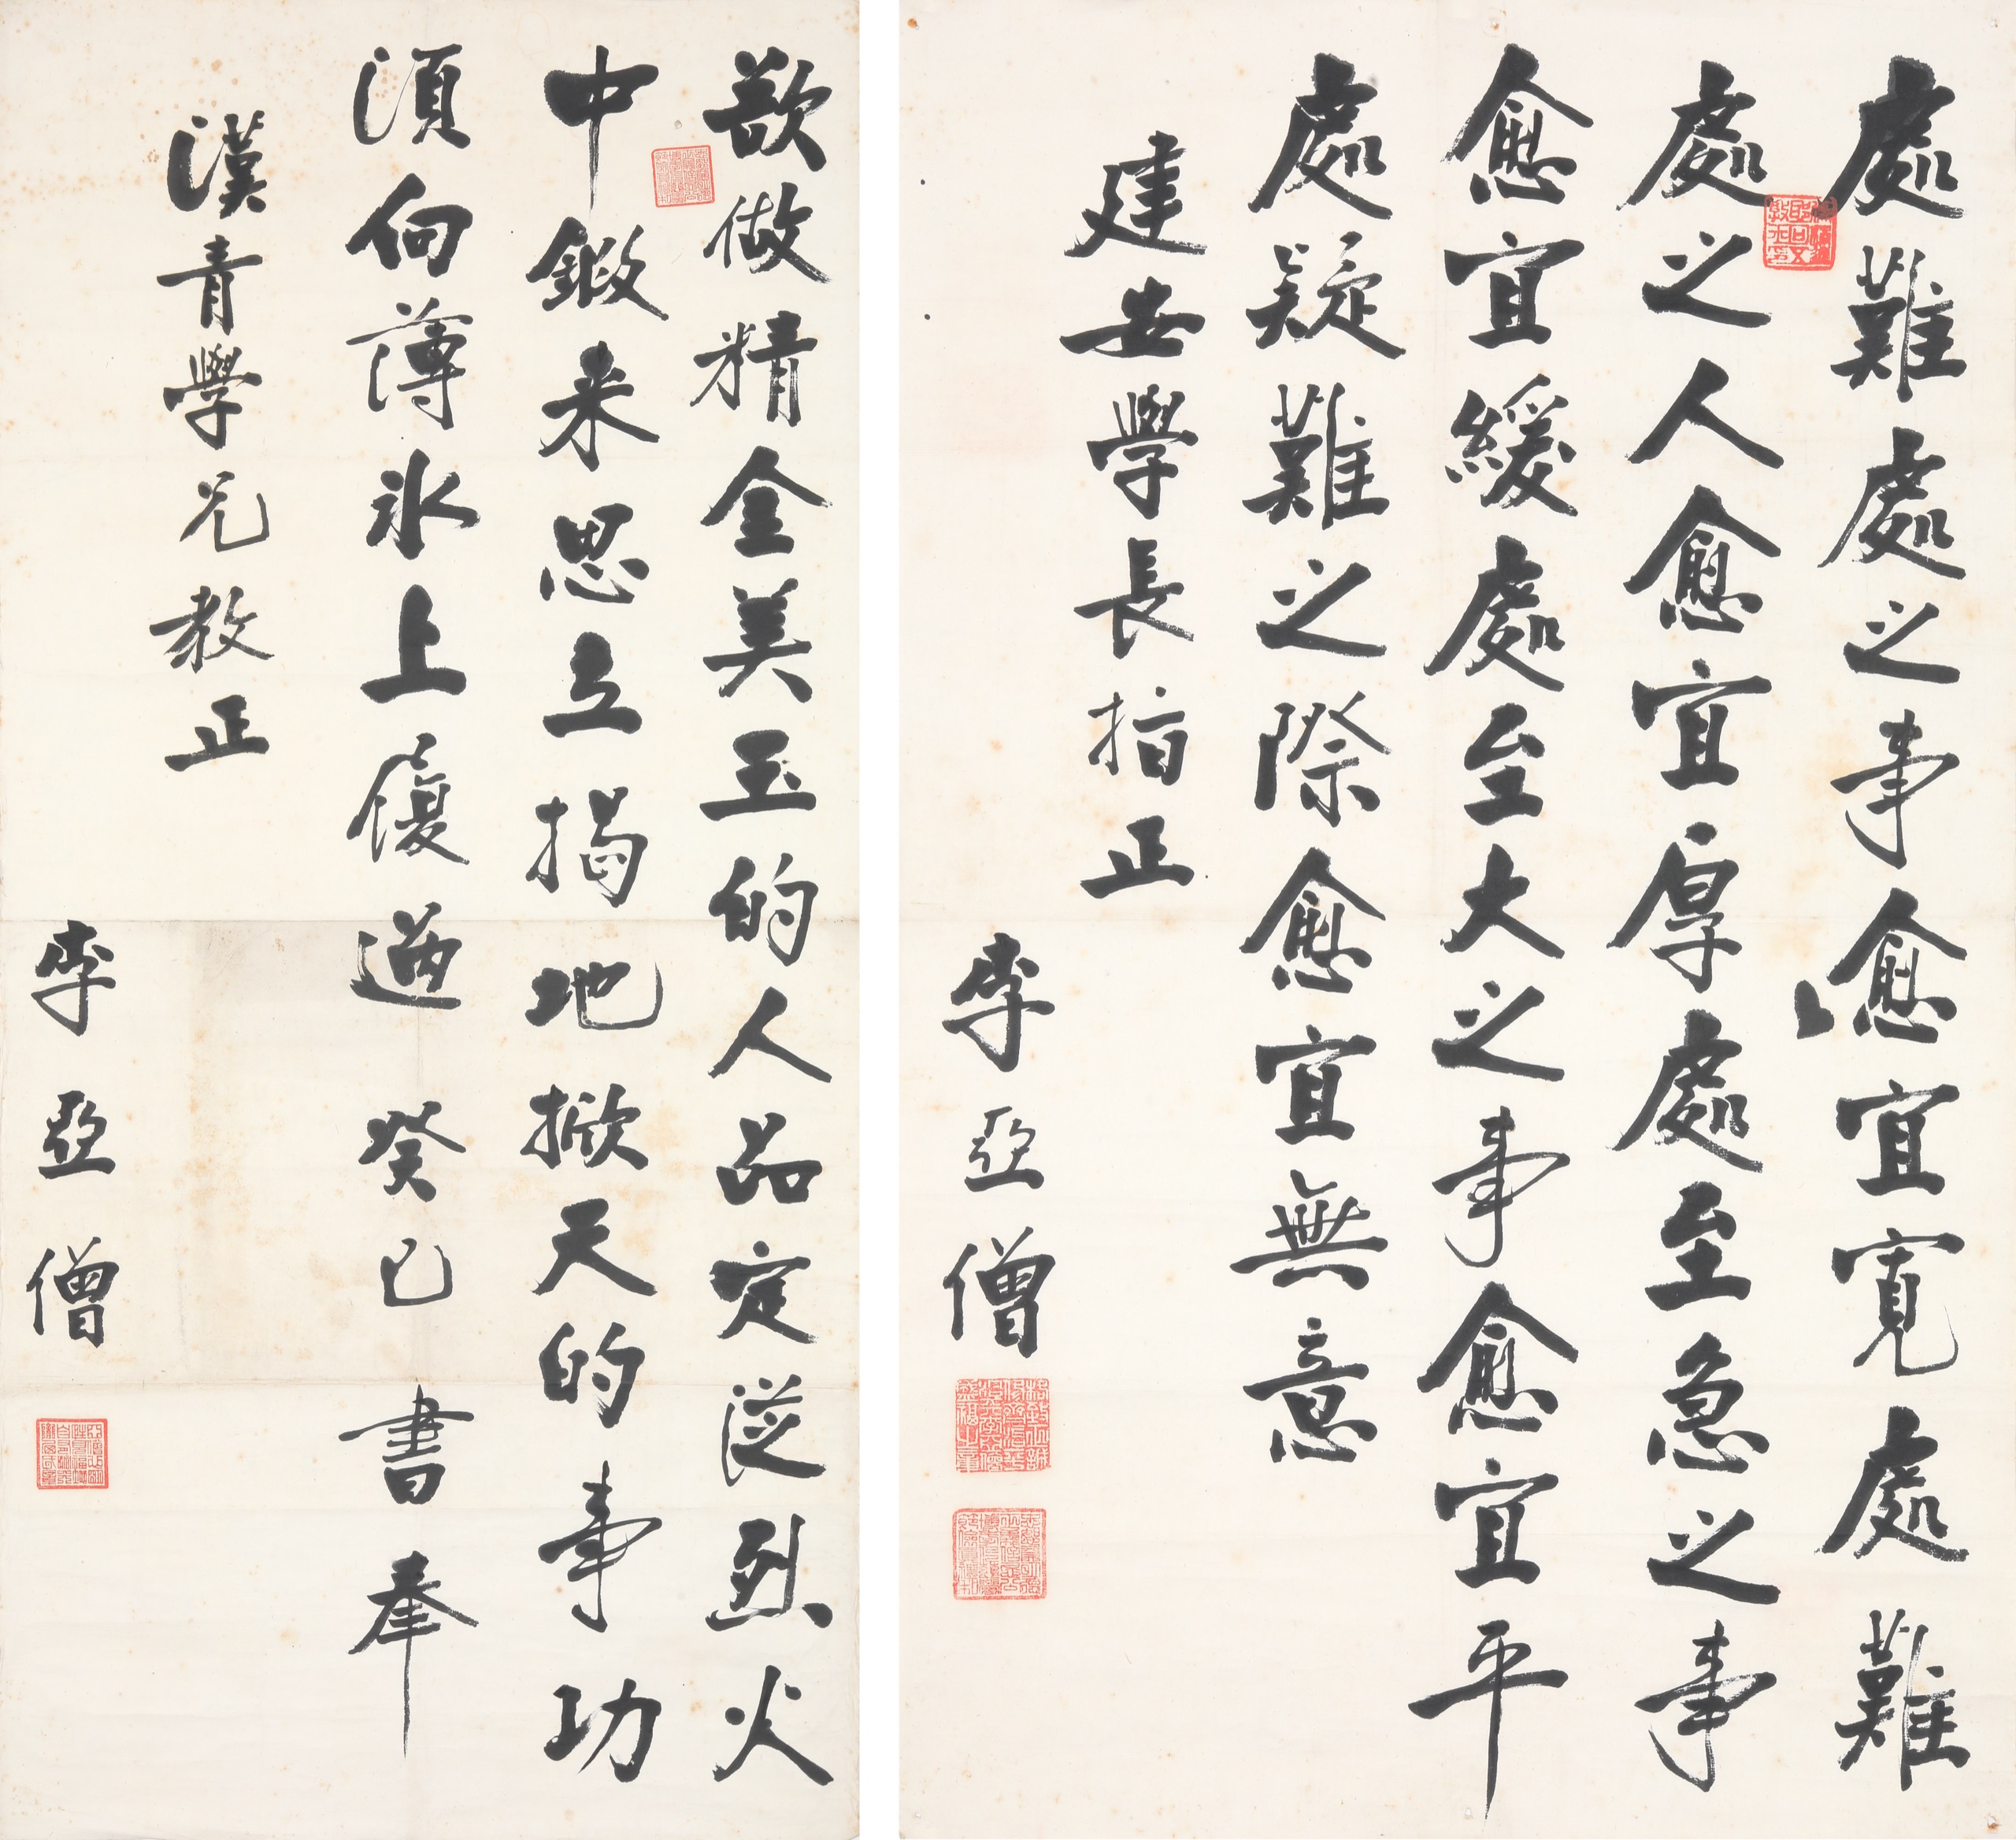 處難處之事愈宜寬處難
處之人愈宜厚處至急之事
愈宜緩處至大之事愈宜平
處疑難之際愈宜無意
建安學長指正
李亞僧
欲做精金美玉的人品定從烈火
中鍛来思立揭地掀天的事功
須向薄氷上履過 癸巳書奉
漢青學兄教正
李亞僧